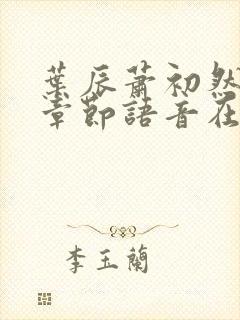 葉辰蕭初然
章節語音在
李玉蘭